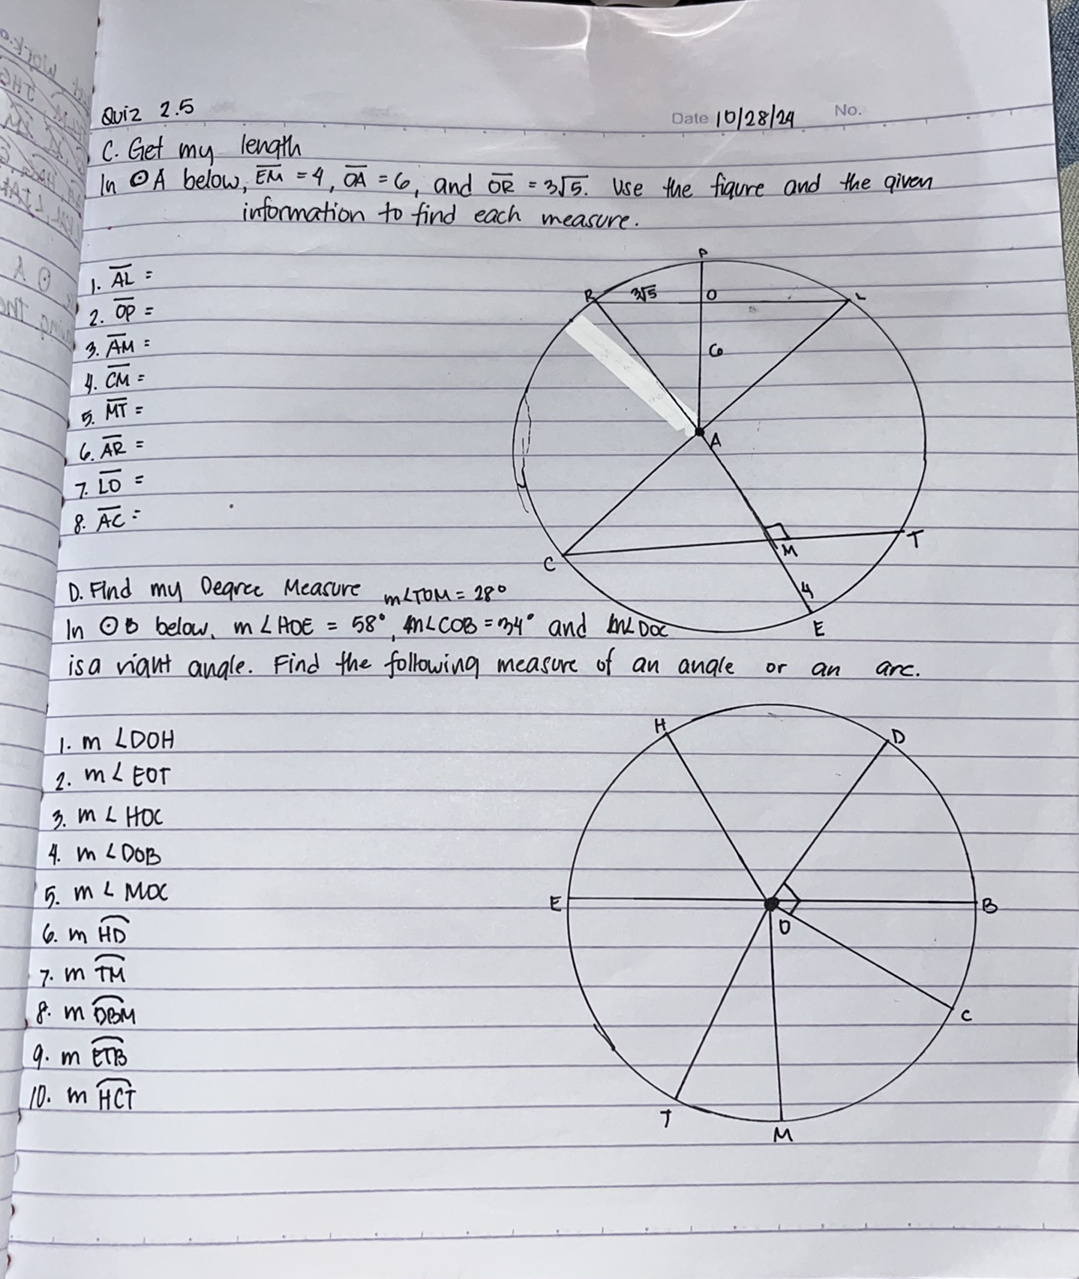 Quiz 2.5
Date 10/28/24 No.
C. Get my length
In ⊙A below, EM = 4, OA = 6, and OR = 3√5. Use the figure and the given
information to find each measure.
1. AL =
2. OP =
3. AM =
4. CM =
5. MT =
6. AR =
7. LO =
8. AC =
P
R 3√5 O L
6
A
M T
C
4
E
D. Find my Degree Measure m∠TOM = 28°
In ⊙O below, m∠HOE = 58°, m∠COB = 34° and m∠DOC
is a right angle. Find the following measure of an angle or an arc.
1. m ∠DOH
2. m ∠EOT
3. m ∠HOC
4. m ∠DOB
5. m ∠MOC
6. m HD
7. m TM
8. m DBM
9. m ETB
10. m HCT
H D
E B
O
C
T
M